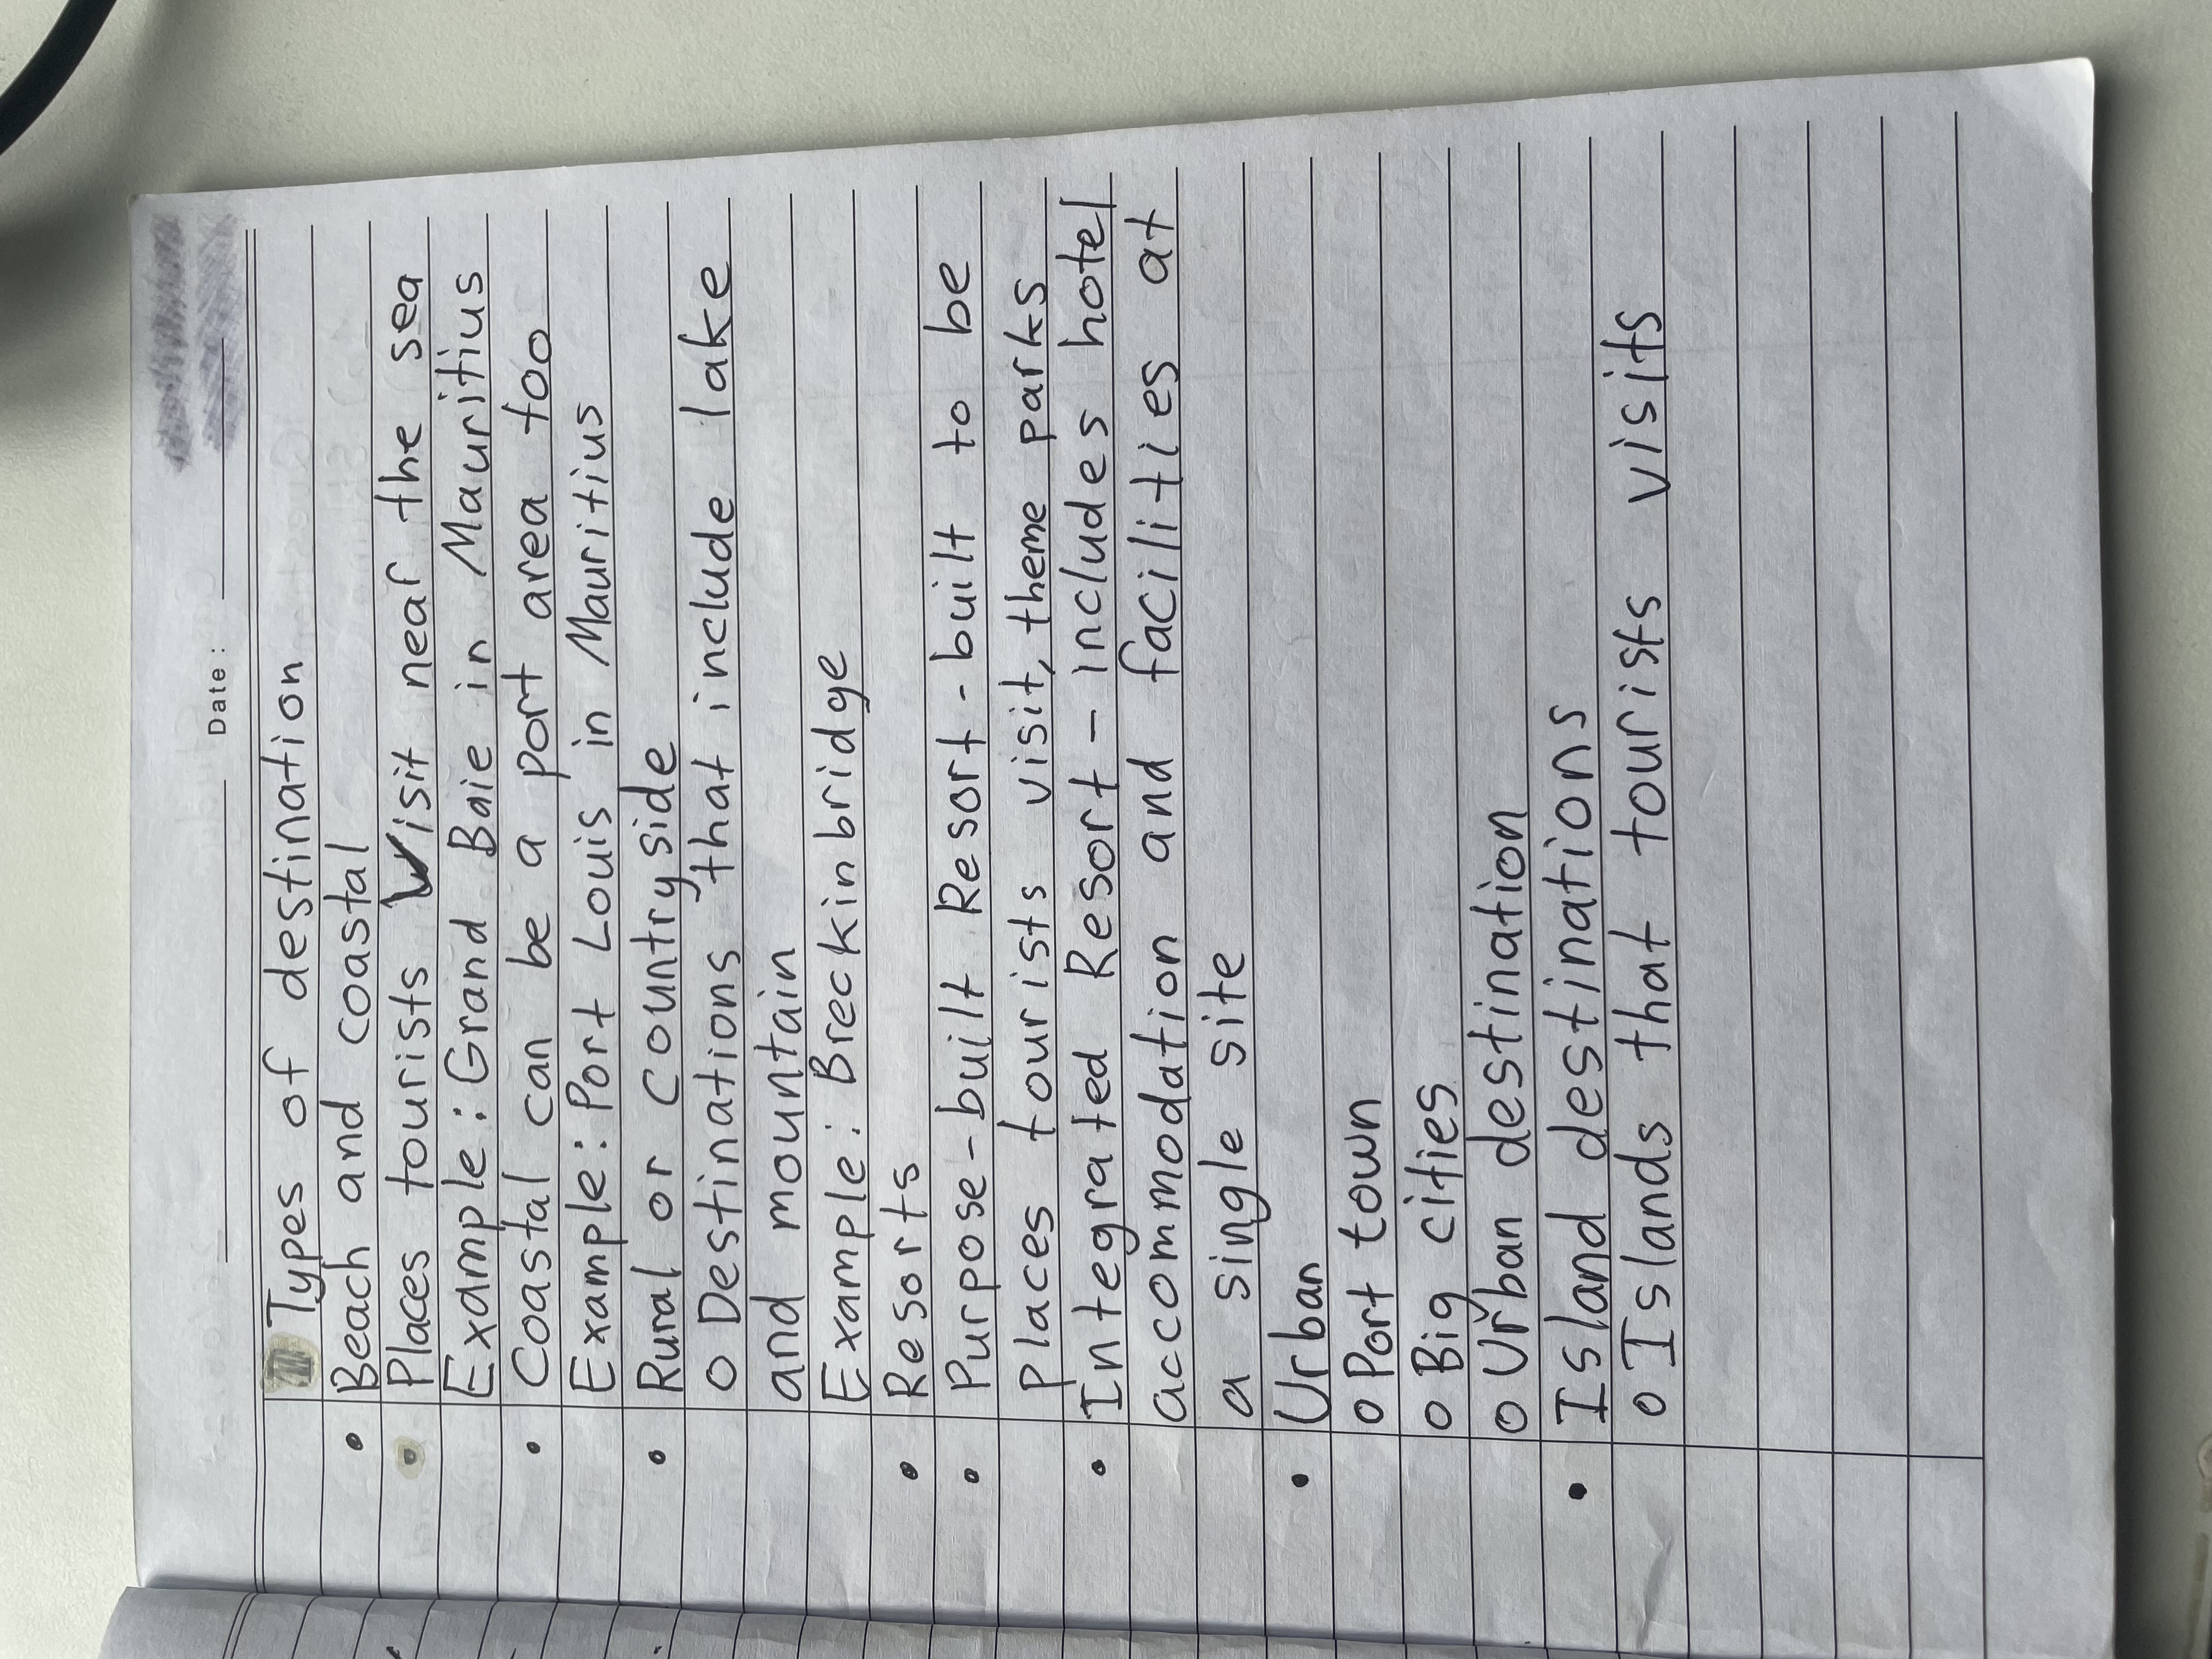 Date:
Types of destination
• Beach and coastal
• Places tourists Visit near the sea
Example: Grand Baie in Mauritius
• Coastal can be a port area too
Example: Port Louis in Mauritius
• Rural or Countryside
o Destinations that include lake
and mountain
Example: Breckinbridge
• Resorts
• Purpose-built Resort - built to be
places tourists visit, theme parks
• Integrated Resort - includes hotel
accommodation and facilities at
a single site
• Urban
o Port town
o Big cities
o Urban destination
• Island destinations
o Islands that tourists visits